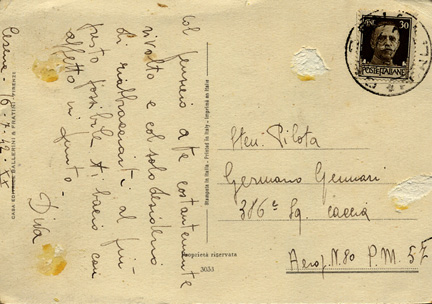 Cesena - 6.7.42 - XX
Col pensiero a te costantemente
rivolto e col solo desiderio
di riabbracciarti al più
presto possibile ti bacio con
affetto in finito -
Diva
CASA EDIT. BALLERINI & FRATINI - FIRENZE
Stampata in Italia - Printed in Italy - Imprimé en Italie
Proprietà riservata
3033
30
POSTE ITALIANE
Sten. Pilota
Germano Gennari
386ª Sq. Caccia
Aerop. N. 80 P.M. 57